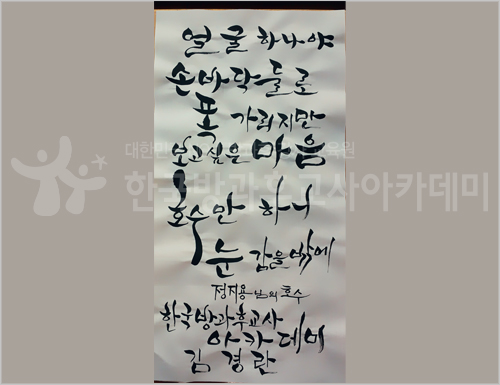 얼굴 하나야
손바닥 둘로
폭 가리지만
보고싶은 마음
호수만 하니
눈 감을 밖에
정지용님의 호수
한국방과후교사
아카데미
김경란
한국방과후교사아카데미